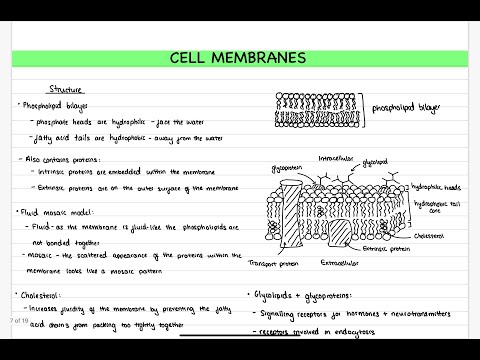 CELL MEMBRANES
Structure
• Phospholipid bilayer
- phosphate heads are hydrophilic - face the water
- fatty acid tails are hydrophobic - away from the water
phospholipid bilayer
• Also contains proteins:
- Intrinsic proteins are embedded within the membrane
- Extrinsic proteins are on the outer surface of the membrane
• Fluid mosaic model:
- Fluid - as the membrane is fluid-like the phospholipids are
not bonded together
- mosaic - the scattered appearance of the proteins within the
membrane looks like a mosaic pattern
Intracellular
glycoprotein
glycolipid
hydrophilic heads
hydrophobic tail
core
Cholesterol
Extrinsic protein
Transport protein
Extracellular
• Cholesterol:
- Increases fluidity of the membrane by preventing the fatty
acid chains from packing too tightly together
• Glycolipids + glycoproteins:
- Signalling receptors for hormones + neurotransmitters
- receptors involved in endocytosis
7 of 19